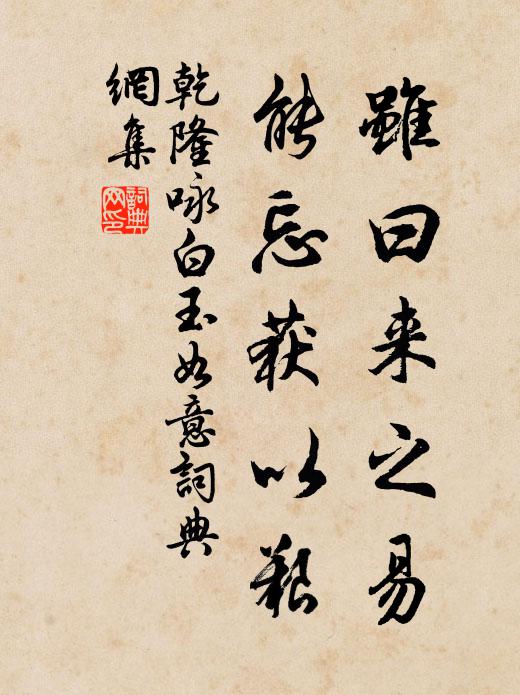 雖曰来之易
能忘获以艱
乾隆咏白玉如意詞典
網集
詞典
网印